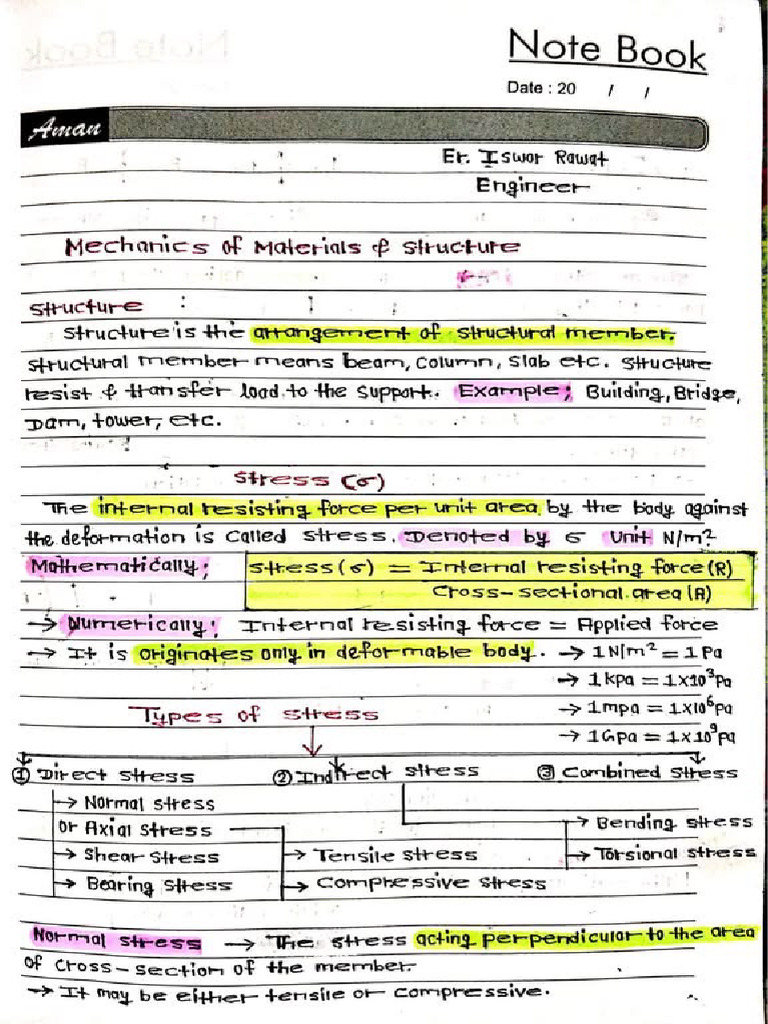 Note Book
Date : 20 / /
Aman
Er. Iswor Rawat
Engineer
Mechanics of Materials & structure
structure :
structure is the arrangement of structural member.
structural member means beam, column, slab etc. structure
resist & transfer load to the support. Example; Building, Bridge,
Dam, tower, etc.
stress (σ)
The internal resisting force per unit area by the body against
the deformation is called stress. Denoted by σ Unit N/m²
Mathematically; stress (σ) = Internal resisting force (R)
Cross-sectional area (A)
→ Numerically; Internal resisting force = Applied force
→ It is originates only in deformable body. → 1 N/m² = 1 Pa
→ 1 kpa = 1×10³ Pa
→ 1 mpa = 1×10⁶ Pa
→ 1 Gpa = 1×10⁹ Pa
Types of stress
① Direct stress ② Indirect stress ③ Combined stress
→ Normal stress
or Axial stress → Bending stress
→ Shear stress → Tensile stress → Torsional stress
→ Bearing stress → Compressive stress
Normal stress → The stress acting perpendicular to the area
of cross-section of the member.
→ It may be either tensile or compressive.